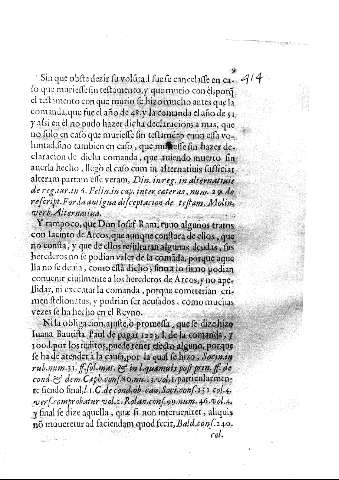 9
414
Sin que obste dezir su volūtad fue se cancelasse en ca-
so que muriesse sin testamento, y que murio con èl, porq̃
el testamento con que murio se hizo mucho antes que la
comanda, que fue el año de 48. y la comanda el año de 51
y assi en èl no pudo hazer dicha declaracion a mas, que
no solo en caso que muriesse sin testamēto era essa vo-
luntad, sino tambien en caso, que muriesse sin hazer de-
claracion de dicha comanda, que auiendo muerto sin
auerla hecho, llegò el caso cum in alternatiuis sufficiat
alteram partem esse veram, Din. in reg. in alternatiuis
de reg. iur. in 6. Felin. in cap. inter cæteras, num. 29. de
rescript. Ferlo. antigua disceptacion de testam. Molin.
verb. Alternatiua.
Y tampoco, que Don Iosef Ram, tuuo algunos tratos
con Iacinto de Arcos, que aunque constara de ellos, que
no consta, y que de ellos resultaran algunas deudas, sus
herederos no se podian valer de la comāda, porque aque
lla no se deuia, como està dicho; sino lo sumo podian
conuenir ciuilmente a los herederos de Arcos, y no ape-
llidar, ni executar la comanda, porque cometerian cri-
men stelionatus, y podrian ser acusados, como muchas
vezes se ha hecho en el Reyno.
Ni la obligacion, ajuste, ò promessa, que se dize hizo
Iuana Bautista Paul de pagar 1203. l. de la comanda, y
100 l. por los reditos, puede tener efecto alguno, porque
se ha de atender à la causa, por la qual se hizo, Socin. in
rub. num. 33. ff. sol. mat. & in l. quamuis post prim. ff. de
cond. & dem. Caph. cons. 80. num. 13. vol. 1. particularmen-
te siendo final, l. 1. C. de cond. ob caus. Soci. cons. 232. vol. 4.
vers. comprobatur vol. 2. Rolan. cons. 99. num. 46. vol. 4.
y final se dize aquella, quæ si non interueniret, aliquis
nõ moueretur ad faciendam quod fecit, Bald. cons. 240.
col.